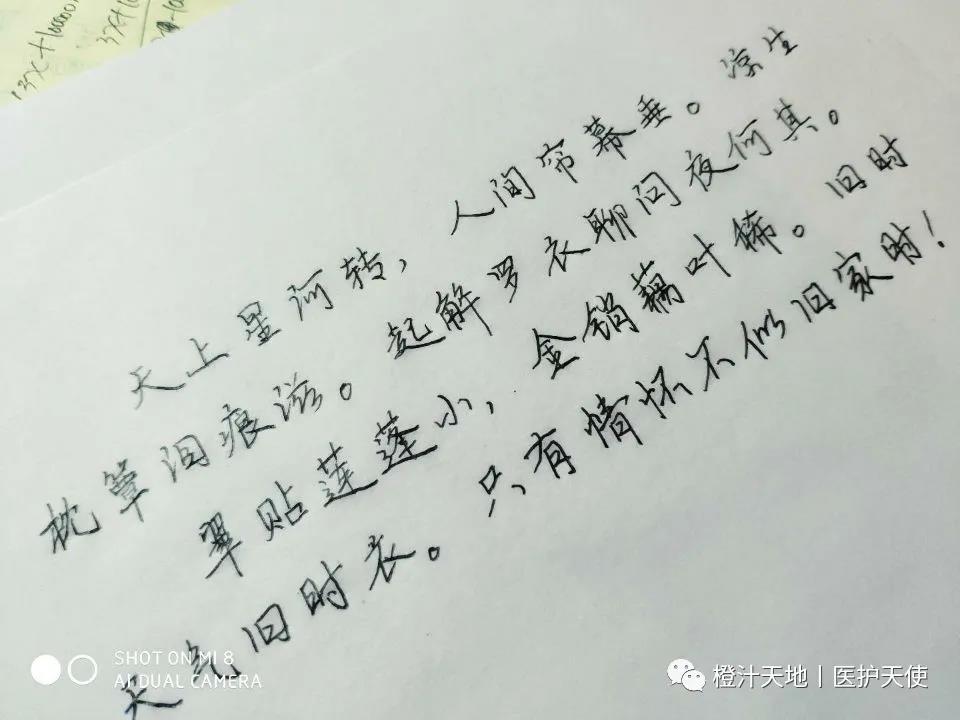 天上星河转，人间帘幕垂。凉生
枕簟泪痕滋。起解罗衣聊问夜何其。
翠贴莲蓬小，金销藕叶稀。旧时
天气旧时衣。只有情怀不似旧家时！
SHOT ON MI 8
AI DUAL CAMERA
橙汁天地丨医护天使